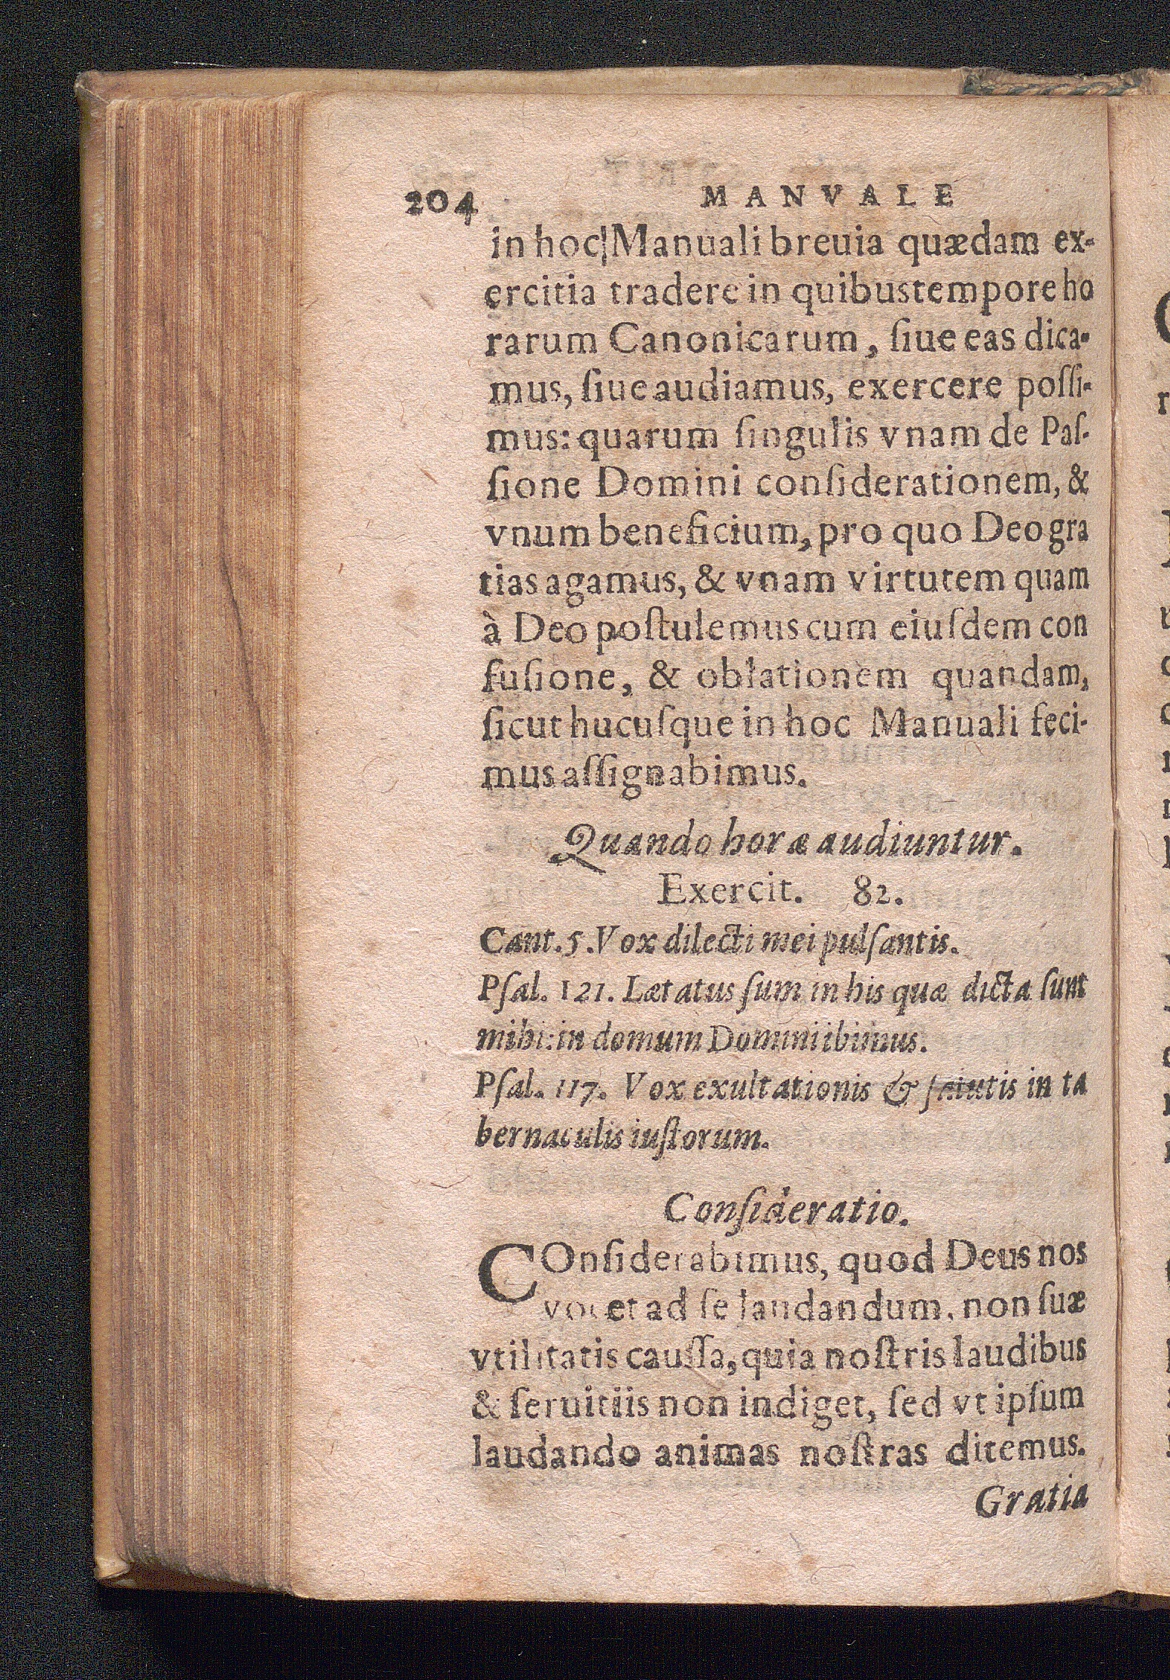 204 MANVALE
in hoc Manuali breuia quædam ex-
ercitia tradere in quibus tempore ho
rarum Canonicarum, ſiue eas dica-
mus, ſiue audiamus, exercere poſſi-
mus: quarum ſingulis vnam de Paſ-
ſione Domini conſiderationem, &
vnum beneficium, pro quo Deo gra
tias agamus, & vnam virtutem quam
à Deo poſtulemus cum eiuſdem con
fuſione, & oblationem quandam,
ſicut hucuſque in hoc Manuali feci-
mus aſſignabimus.
Quando horæ audiuntur.
Exercit. 82.
Cant. 5. Vox dilecti mei pulſantis.
Pſal. 121. Lætatus ſum in his quæ dicta ſunt
mihi: in domum Domini ibimus.
Pſal. 117. Vox exultationis & ſalutis in ta
bernaculis iuſtorum.
Conſideratio.
COnſiderabimus, quod Deus nos
vocet ad ſe laudandum, non ſuæ
vtilitatis cauſſa, quia noſtris laudibus
& ſeruitiis non indiget, ſed vt ipſum
laudando animas noſtras ditemus.
Gratia